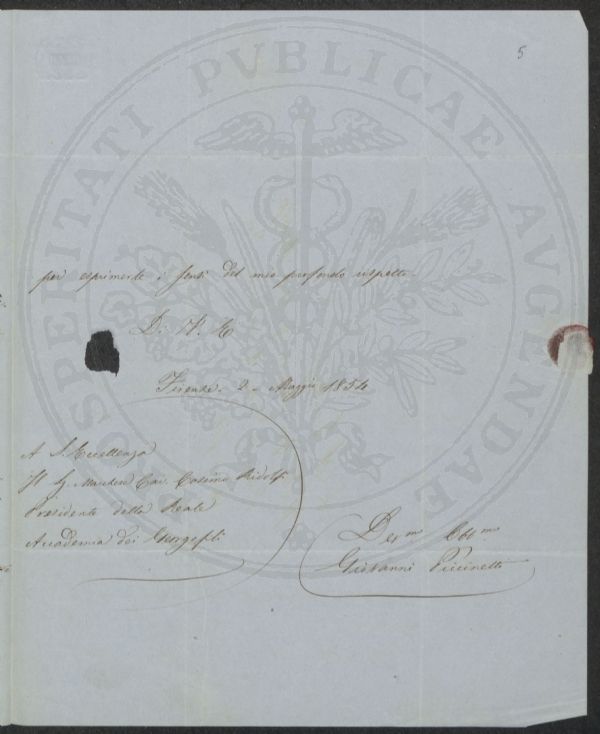 5
PROSPERITATI PVBLICAE AVGENDAE
per esprimerle i sensi del mio profondo rispetto.
Di V. E.
Firenze 2. Maggio 1854
A S. Eccellenza
Il Sig Marchese Cav. Cosimo Ridolfi
Presidente della Reale
Accademia dei Georgofili
Dev.mo Obb.mo
Giovanni Piccinetti